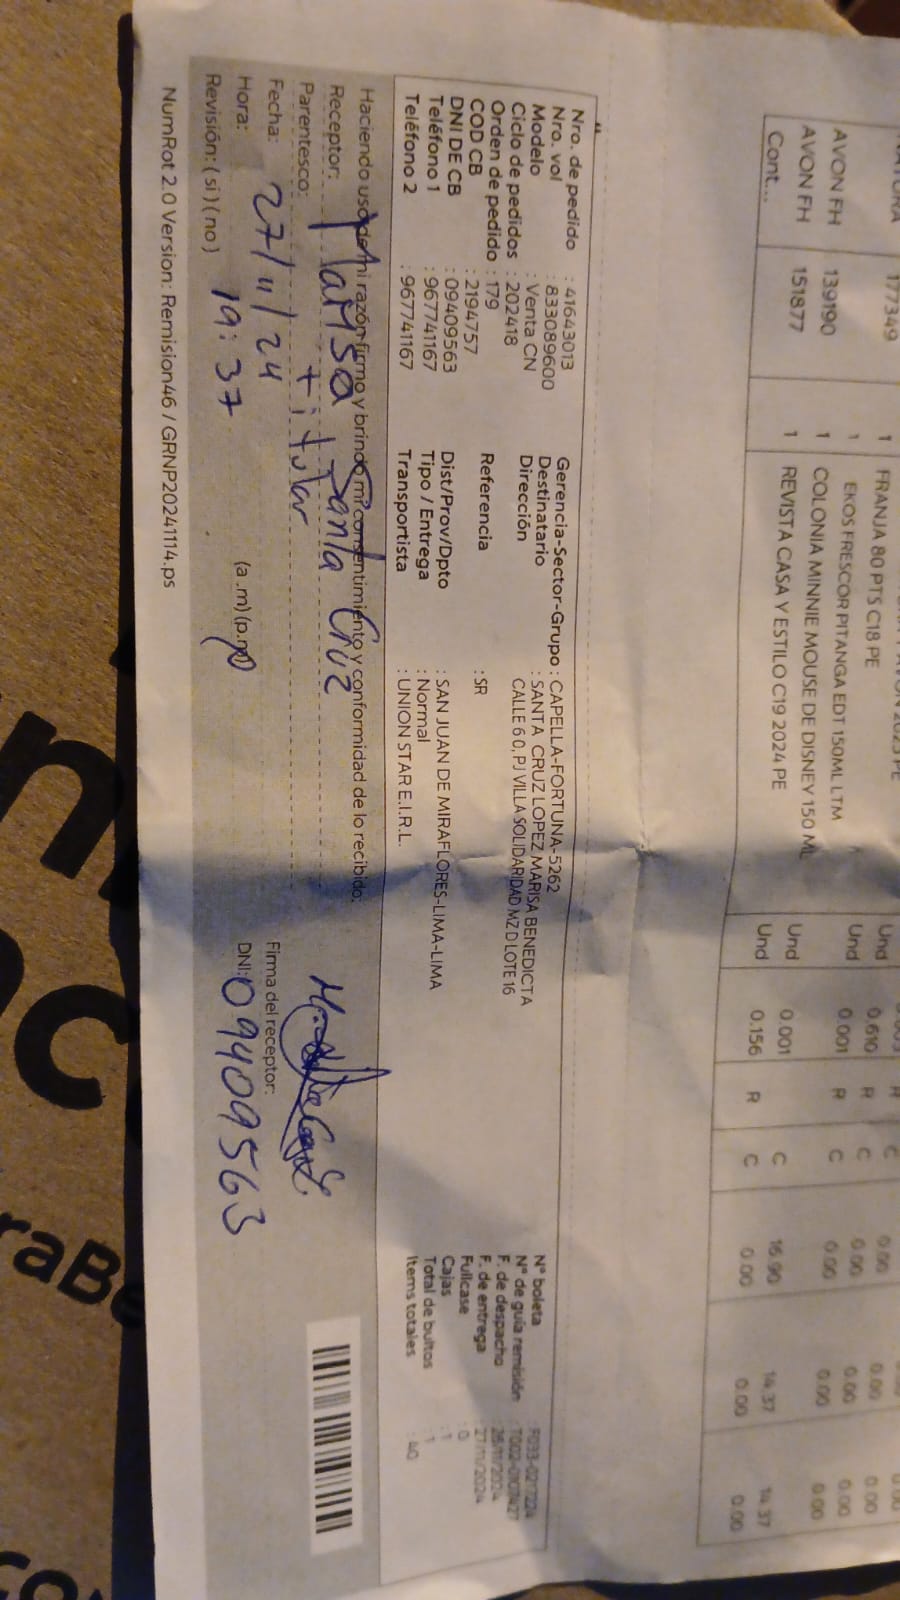 177349 1 FRANJA 80 PTS C18 PE Und 0.610 R C 0.00 0.00 0.00
1 EKOS FRESCOR PITANGA EDT 150ML LTM Und 0.001 R C 0.00 0.00 0.00
AVON FH 139190 1 COLONIA MINNIE MOUSE DE DISNEY 150 ML Und 0.001 R C 0.00 0.00 0.00
AVON FH 151877 1 REVISTA CASA Y ESTILO C19 2024 PE Und 0.156 C 16.90 14.37 14.37
Cont... R C 0.00 0.00 0.00
Nro. de pedido : 41643013
Nro. vol : 833089600
Modelo : Venta CN
Ciclo de pedidos : 202418
Orden de pedido : 179
COD CB : 2194757
DNI DE CB : 09409563
Teléfono 1 : 967741167
Teléfono 2 : 967741167
Gerencia-Sector-Grupo : CAPELLA-FORTUNA-5262
Destinatario : SANTA CRUZ LOPEZ MARISA BENEDICTA
Dirección CALLE 6 0, PJ VILLA SOLIDARIDAD MZ D LOTE 16
Referencia : SR
Dist/Prov/Dpto : SAN JUAN DE MIRAFLORES-LIMA-LIMA
Tipo / Entrega : Normal
Transportista : UNION STAR E.I.R.L.
N° boleta
N° de guía remisión
F. de despacho : 26/11/2024
F. de entrega : 27/11/2024
Fullcase : 0
Cajas : 1
Total de bultos : 1
Items totales : 40
Haciendo uso de mi razón firmo y brindo mi consentimiento y conformidad de lo recibido.
Receptor: Marisa Santa Cruz
Parentesco: titular
Fecha: 27/11/24
Hora: 19:37 (a .m) (p.m)
Revisión: ( si ) ( no )
Firma del receptor:
DNI: 09409563
NumRot 2.0 Version: Remision46 / GRNP20241114.ps